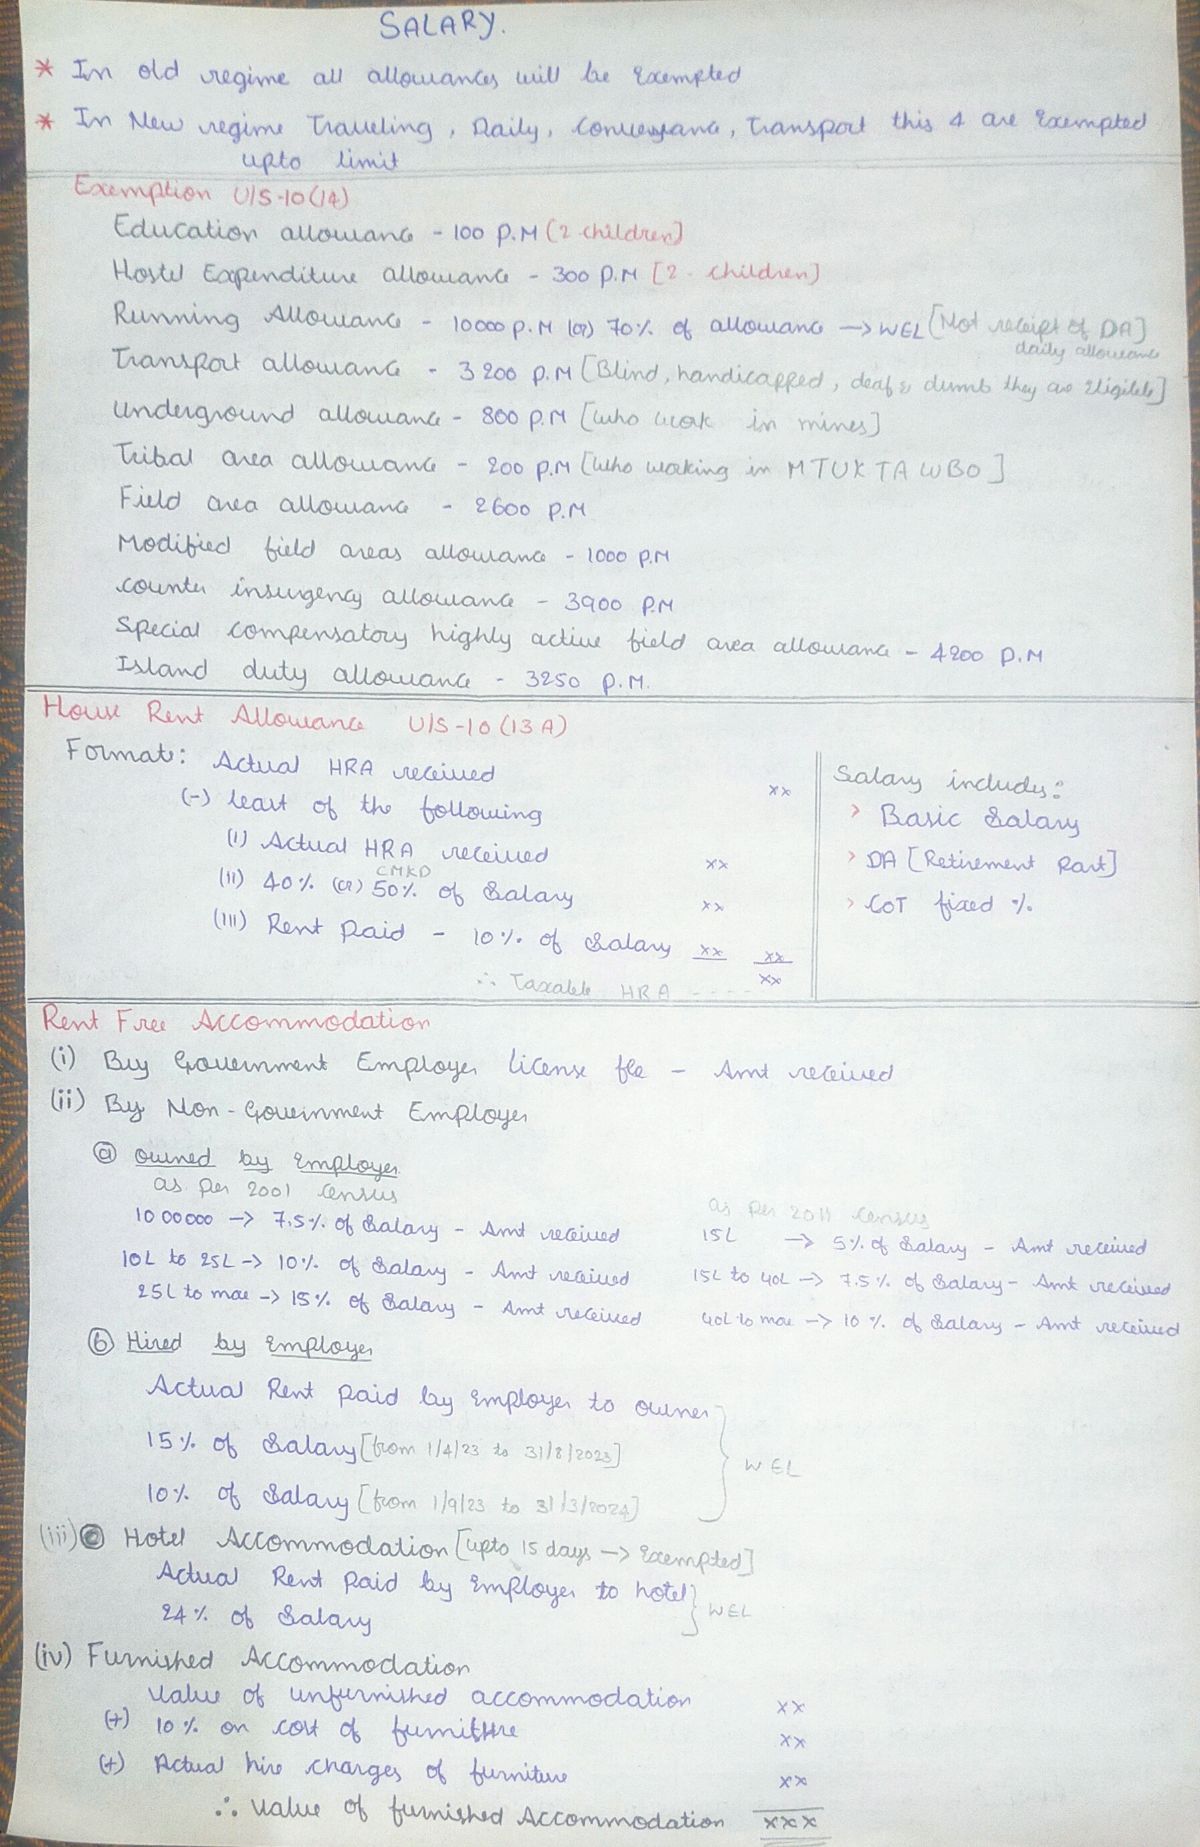 SALARY.
* In old regime all allowances will be Exempted
* In New regime Traveling, Daily, Conveyance, Transport this 4 are Exempted
upto limit
Exemption U/S-10(14)
Education allowance - 100 P.M (2 children)
Hostel Expenditure allowance - 300 P.M [2 - children]
Running Allowance - 10000 P.M (or) 70% of allowance → WEL [Not receipt of DA]
daily allowance
Transport allowance - 3200 P.M [Blind, handicapped, deaf & dumb they are Eligible]
Underground allowance - 800 P.M [who work in mines]
Tribal area allowance - 200 P.M [who working in MTUKTAWBO]
Field area allowance - 2600 P.M
Modified field areas allowance - 1000 P.M
counter insurgency allowance - 3900 P.M
Special compensatory highly active field area allowance - 4200 P.M
Island duty allowance - 3250 P.M.
House Rent Allowance U/S-10(13A)
Format: Actual HRA received xx
(-) least of the following
(i) Actual HRA received xx
CMKD
(ii) 40% (or) 50% of Salary xx
(iii) Rent Paid - 10% of Salary xx xx
∴ Taxable HRA ---- xx
Salary includes:
> Basic Salary
> DA [Retirement Part]
> COT fixed %
Rent Free Accommodation
(i) Buy Government Employer license fee - Amt received
(ii) By Non-Government Employer
(a) owned by Employer
as per 2001 census
1000000 → 7.5% of Salary - Amt received
10L to 25L → 10% of Salary - Amt received
25L to more → 15% of Salary - Amt received
as per 2011 census
15L → 5% of Salary - Amt received
15L to 40L → 7.5% of Salary - Amt received
40L to more → 10% of Salary - Amt received
(b) Hired by Employer
Actual Rent paid by Employer to owner
15% of Salary [from 1/4/23 to 31/8/2023]
WEL
10% of Salary [from 1/9/23 to 31/3/2024]
(iii) Hotel Accommodation [upto 15 days → Exempted]
Actual Rent paid by Employer to hotel
24% of Salary
WEL
(iv) Furnished Accommodation
Value of unfurnished accommodation xx
(+) 10% on cost of furniture xx
(+) Actual hire charges of furniture xx
∴ Value of furnished Accommodation xxx